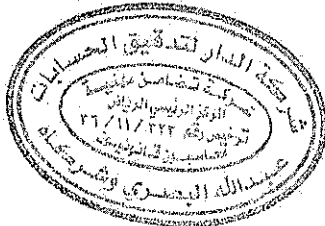 شركة الدار لتدقيق الحسابات
شركة تضامن مهنية
المركز الرئيسي الرياض
ترخيص رقم ٣٢٣ / ١١ / ٣٦
محاسبون قانونيون
عبدالله البصري وشركاه